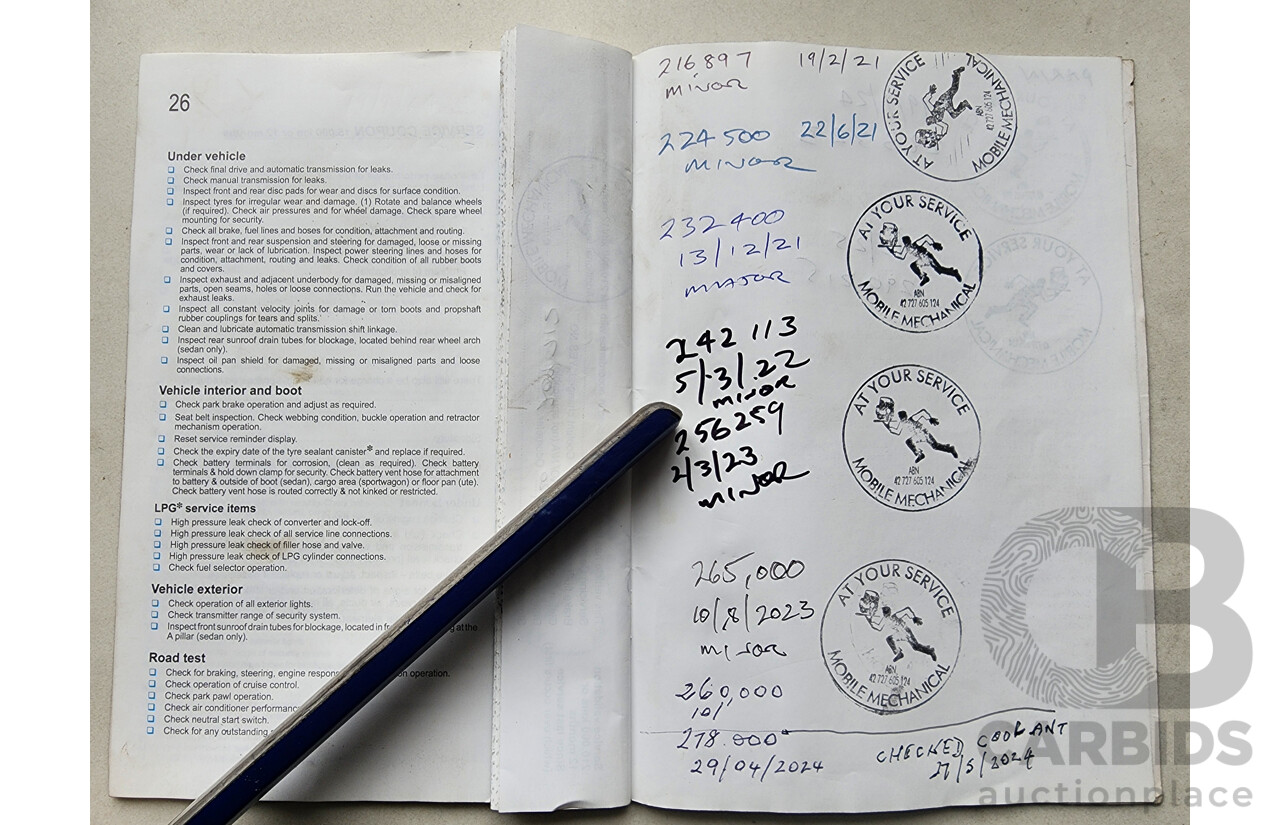 26
Under vehicle
Check final drive and automatic transmission for leaks.
Check manual transmission for leaks.
Inspect front and rear disc pads for wear and discs for surface condition.
Inspect tyres for irregular wear and damage. (1) Rotate and balance wheels
(if required). Check air pressures and for wheel damage. Check spare wheel
mounting for security.
Check all brake, fuel lines and hoses for condition, attachment and routing.
Inspect front and rear suspension and steering for damaged, loose or missing
parts, wear or lack of lubrication. Inspect power steering lines and hoses for
condition, attachment, routing and leaks. Check condition of all rubber boots
and covers.
Inspect exhaust and adjacent underbody for damaged, missing or misaligned
parts, open seams, holes or loose connections. Run the vehicle and check for
exhaust leaks.
Inspect all constant velocity joints for damage or torn boots and propshaft
rubber couplings for tears and splits.
Clean and lubricate automatic transmission shift linkage.
Inspect rear sunroof drain tubes for blockage, located behind rear wheel arch
(sedan only).
Inspect oil pan shield for damaged, missing or misaligned parts and loose
connections.
Vehicle interior and boot
Check park brake operation and adjust as required.
Seat belt inspection. Check webbing condition, buckle operation and retractor
mechanism operation.
Reset service reminder display.
Check the expiry date of the tyre sealant canister* and replace if required.
Check battery terminals for corrosion, (clean as required). Check battery
terminals & hold down clamp for security. Check battery vent hose for attachment
to battery & outside of boot (sedan), cargo area (sportwagon) or floor pan (ute).
Check battery vent hose is routed correctly & not kinked or restricted.
LPG* service items
High pressure leak check of converter and lock-off.
High pressure leak check of all service line connections.
High pressure leak check of filler hose and valve.
High pressure leak check of LPG cylinder connections.
Check fuel selector operation.
Vehicle exterior
Check operation of all exterior lights.
Check transmitter range of security system.
Inspect front sunroof drain tubes for blockage, located in at the
A pillar (sedan only).
Road test
Check for braking, steering, engine operation.
Check operation of cruise control.
Check park pawl operation.
Check air conditioner
Check neutral start switch.
Check for any outstanding
216897 19/2/21
MINOR
AT YOUR SERVICE
ABN
42 727 605 124
MOBILE MECHANICAL
224500 22/6/21
MINOR
232400
13/12/21
MAJOR
AT YOUR SERVICE
ABN
42 727 605 124
MOBILE MECHANICAL
242 113
5/3/22
MINOR
256259
2/3/23
MINOR
AT YOUR SERVICE
ABN
42 727 605 124
MOBILE MECHANICAL
265,000
10/8/2023
AT YOUR SERVICE
ABN
42 727 605 124
MOBILE MECHANICAL
260,000
10/
278.000
29/04/2024
CHECKED COOLANT
CARBIDS
auctionplace